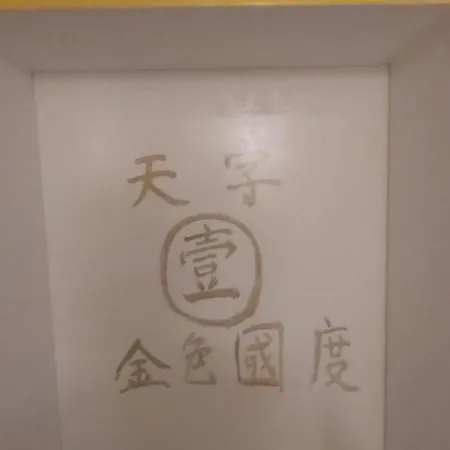 天字
壹
金色國度